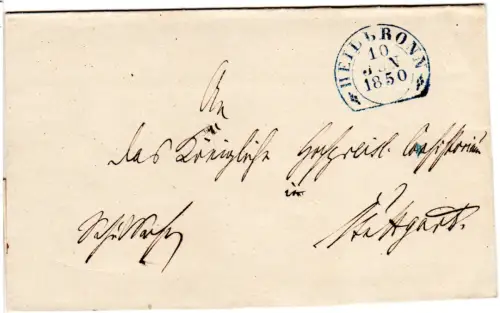 HEILBRONN
10
JAN
1850
An
das Königliche Hochpreisl. Consistorium
in
Stuttgart.